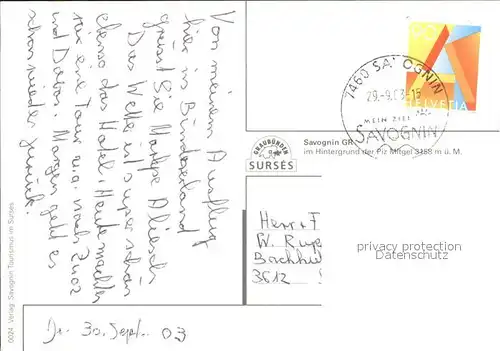 Von meinem Ausflug
hier im Bündnerland
grüsst Sie
Das Wetter ist super schön
ebenso das Hotel. Heute machten
wir eine Tour u.a. nach Zuoz
und Davos. Morgen geht es
schon wieder zurück.
Di. 30. Sept. 03
0024 Verlag: Savognin Tourismus im Surses
90
HELVETIA
7460 SAVOGNIN
29.-9.03-15
MEIN ZIEL
SAVOGNIN
GRAUBÜNDEN
SURSÉS
Savognin GR
im Hintergrund der Piz Mitgel 3158 m ü. M.
Herr + F
W. Rupe
Bachhu
3612 S
privacy protection
Datenschutz